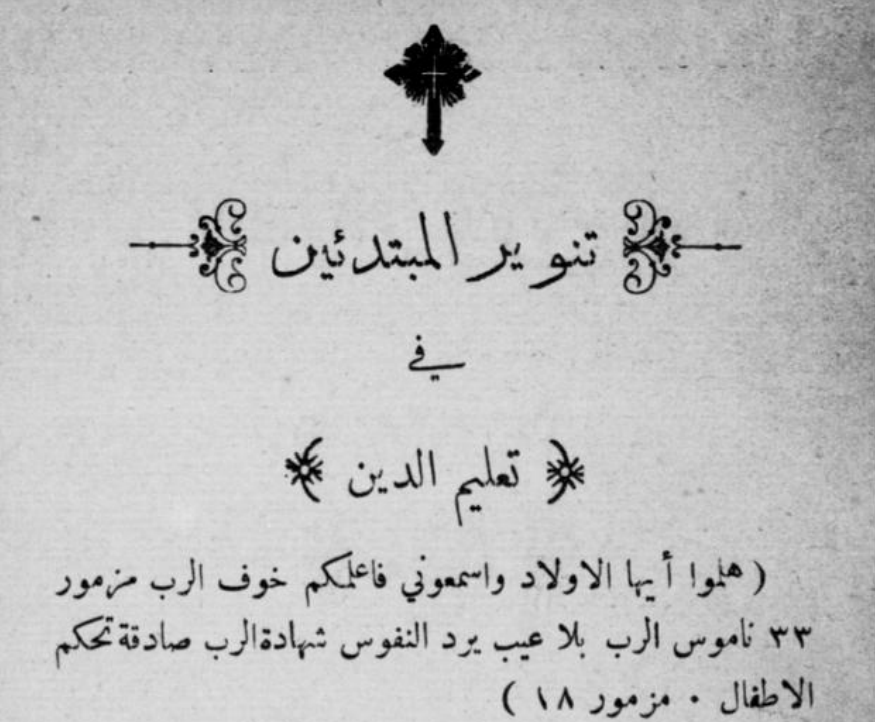 تنوير المبتدئين
في
تعليم الدين
( هلموا أيها الاولاد واسمعوني فاعلمكم خوف الرب مزمور
٣٣ ناموس الرب بلا عيب يرد النفوس شهادة الرب صادقة تحكم
الاطفال · مزمور ١٨ )